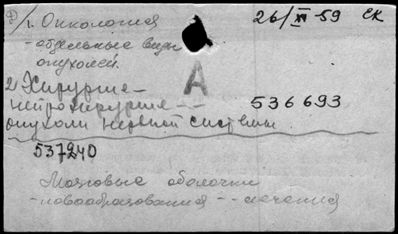 1/г. Онкология 26/XI-59 ск
- отдельные виды
опухолей.
А
2) Хирургия -
нейрохирургия - - 536693
опухоли нервной системы.
537240
Мозговые оболочки
- новообразования - лечения